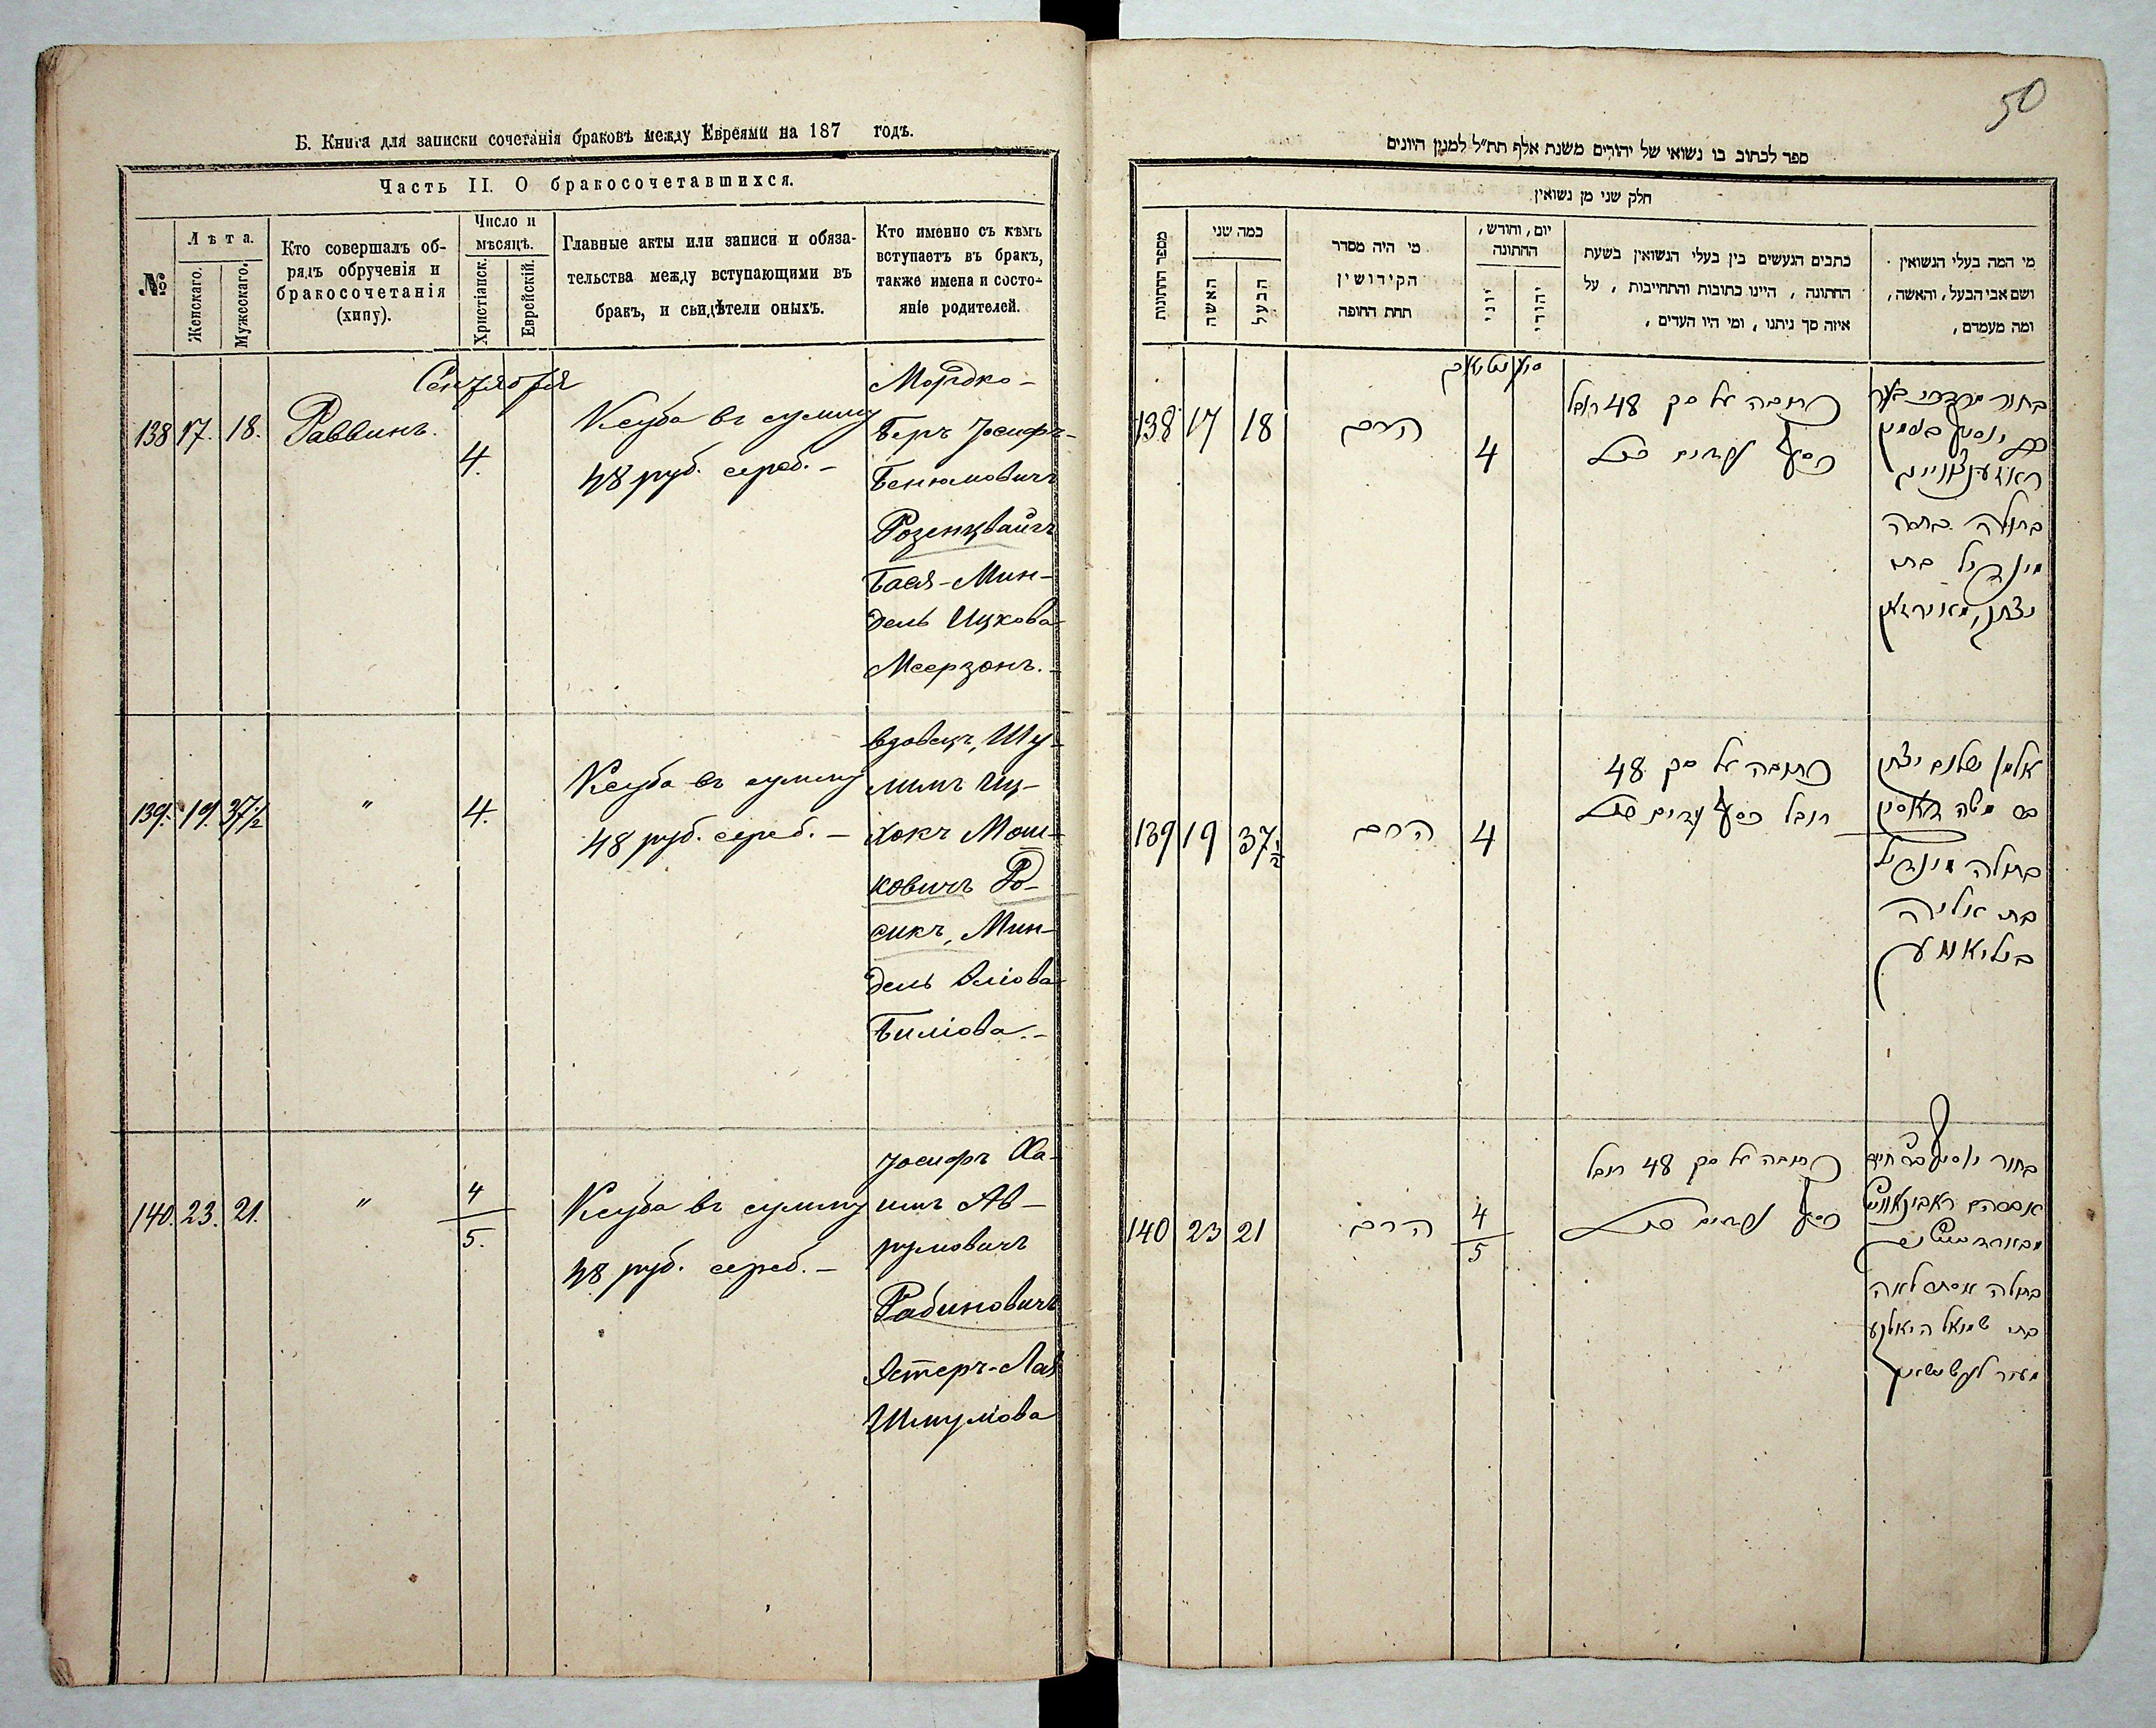 Б. Книга для записки сочетанія браковъ между Евреями на 187 годъ.
Часть II. О бракосочетавшихся.
№
Лѣта.
Женскаго.
Мужескаго.
Кто совершалъ об-
рядъ обрученія и
бракосочетанія
(хипу).
Число и
мѣсяцъ.
Христіанск.
Еврейскій.
Главные акты или записи и обяза-
тельства между вступающими въ
бракъ, и свидѣтели оныхъ.
Кто именно съ кѣмъ
вступаетъ въ бракъ,
также имена и состо-
яніе родителей.
Сентября
138 17. 18. Раввинъ. 4.
Ксуба въ сумму
48 руб. сереб. –
Мордко-
Беръ Іосифъ-
Бенюмовичъ
Розенцвайгъ
Бася-Мин-
дель Ицкова
Меерзонъ. –
139. 19. 37 1/2 " 4.
Ксуба въ сумму
48 руб. сереб. –
вдовецъ, Шу-
лимъ Иц-
хокъ Мош-
ковичъ Ро-
сикъ, Мин-
дель Эліова
Биліова. –
140. 23. 21. " 4/5.
Ксуба въ сумму
48 руб. сереб. –
Іосифъ Ха-
имъ Ав-
румовичъ
Рабиновичъ
Эстеръ-Лая
Шмулова
50
ספר לכתוב בו נשואי של יהודים משנת אלף תת״ל למנין היונים
חלק שני מן נשואין
מספר החתונות
כמה שני
האשה
הבעל
מי היה מסדר
הקידושין
תחת החופה
יום, וחודש,
החתונה
יוני
יהודי
כתבים הנעשים בין בעלי הנשואין בשעת
החתונה, היינו כתובות והתחייבות, על
איזה סך ניתנו, ומי היו העדים,
מי המה בעלי הנשואין
ושם אבי הבעל, והאשה,
ומה מעמדם,
138 17 18 הרב 4
כתובה על סך 48 רובל
כסף
בחור מרדכי בער
יוסף בנימין
ראזענצווייג
בתולה באסה
מינדיל בת
יצחק מאירזאן
139 19 37 1/2 הרב 4
כתובה על סך 48
רובל כסף
אלמן שלום יצחק
בן משה ראסיק
בתולה מינדיל
בת אליה
ביליאווע
140 23 21 הרב 4/5
כתובה על סך 48 רובל
כסף
בחור יוסף חיים
אברהם ראבינאוויץ
בתולה אסתר לאה
בת שמואל